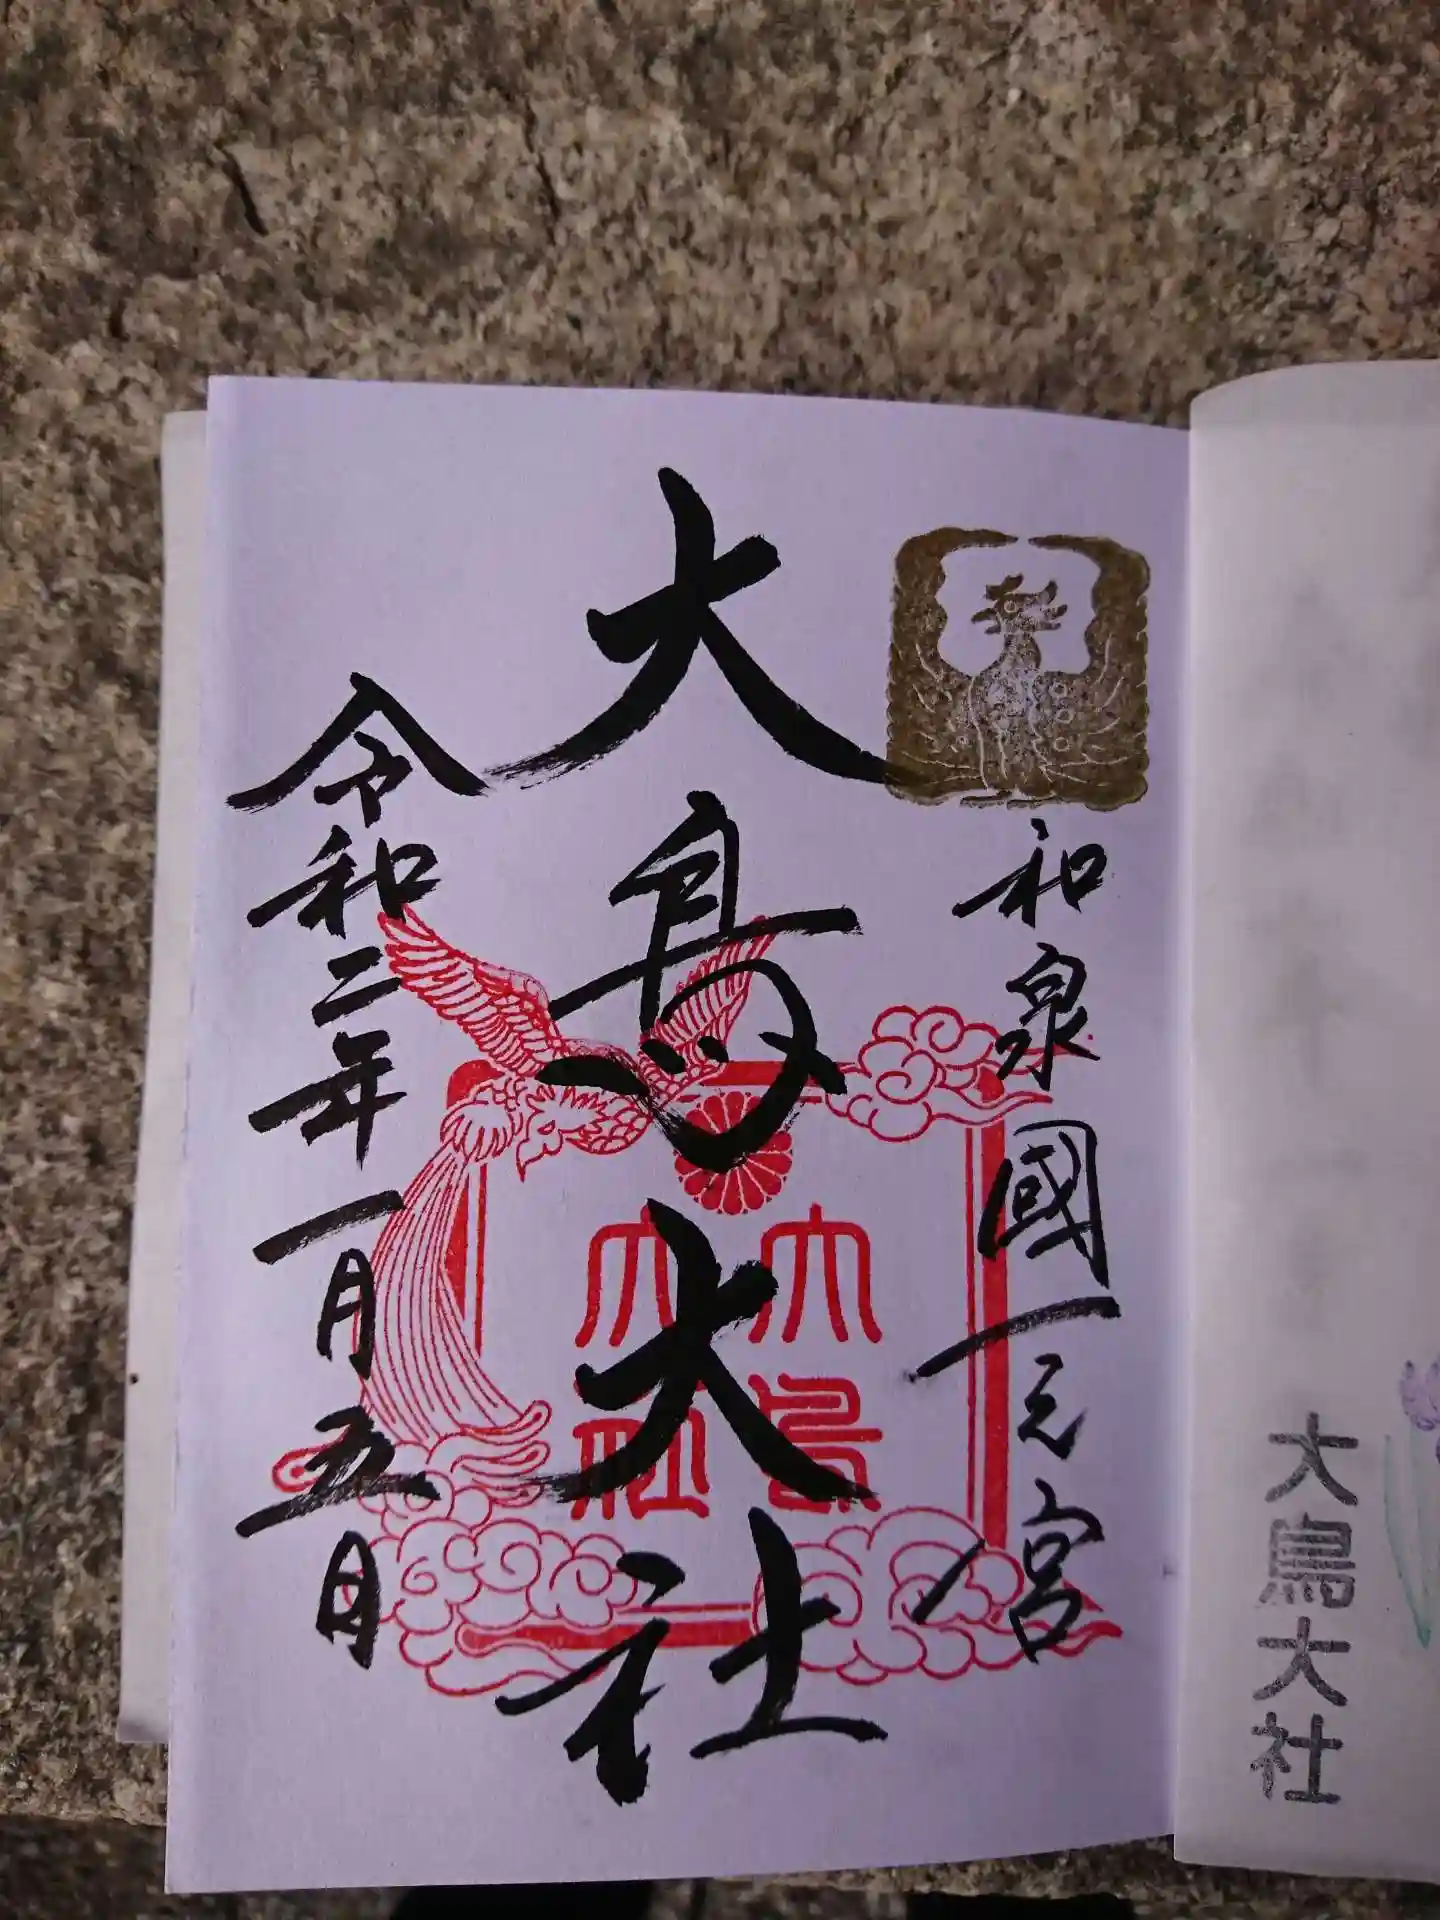 大鳥大社
和泉國一之宮
大鳥大社
大鳥
大社
令和二年一月五日